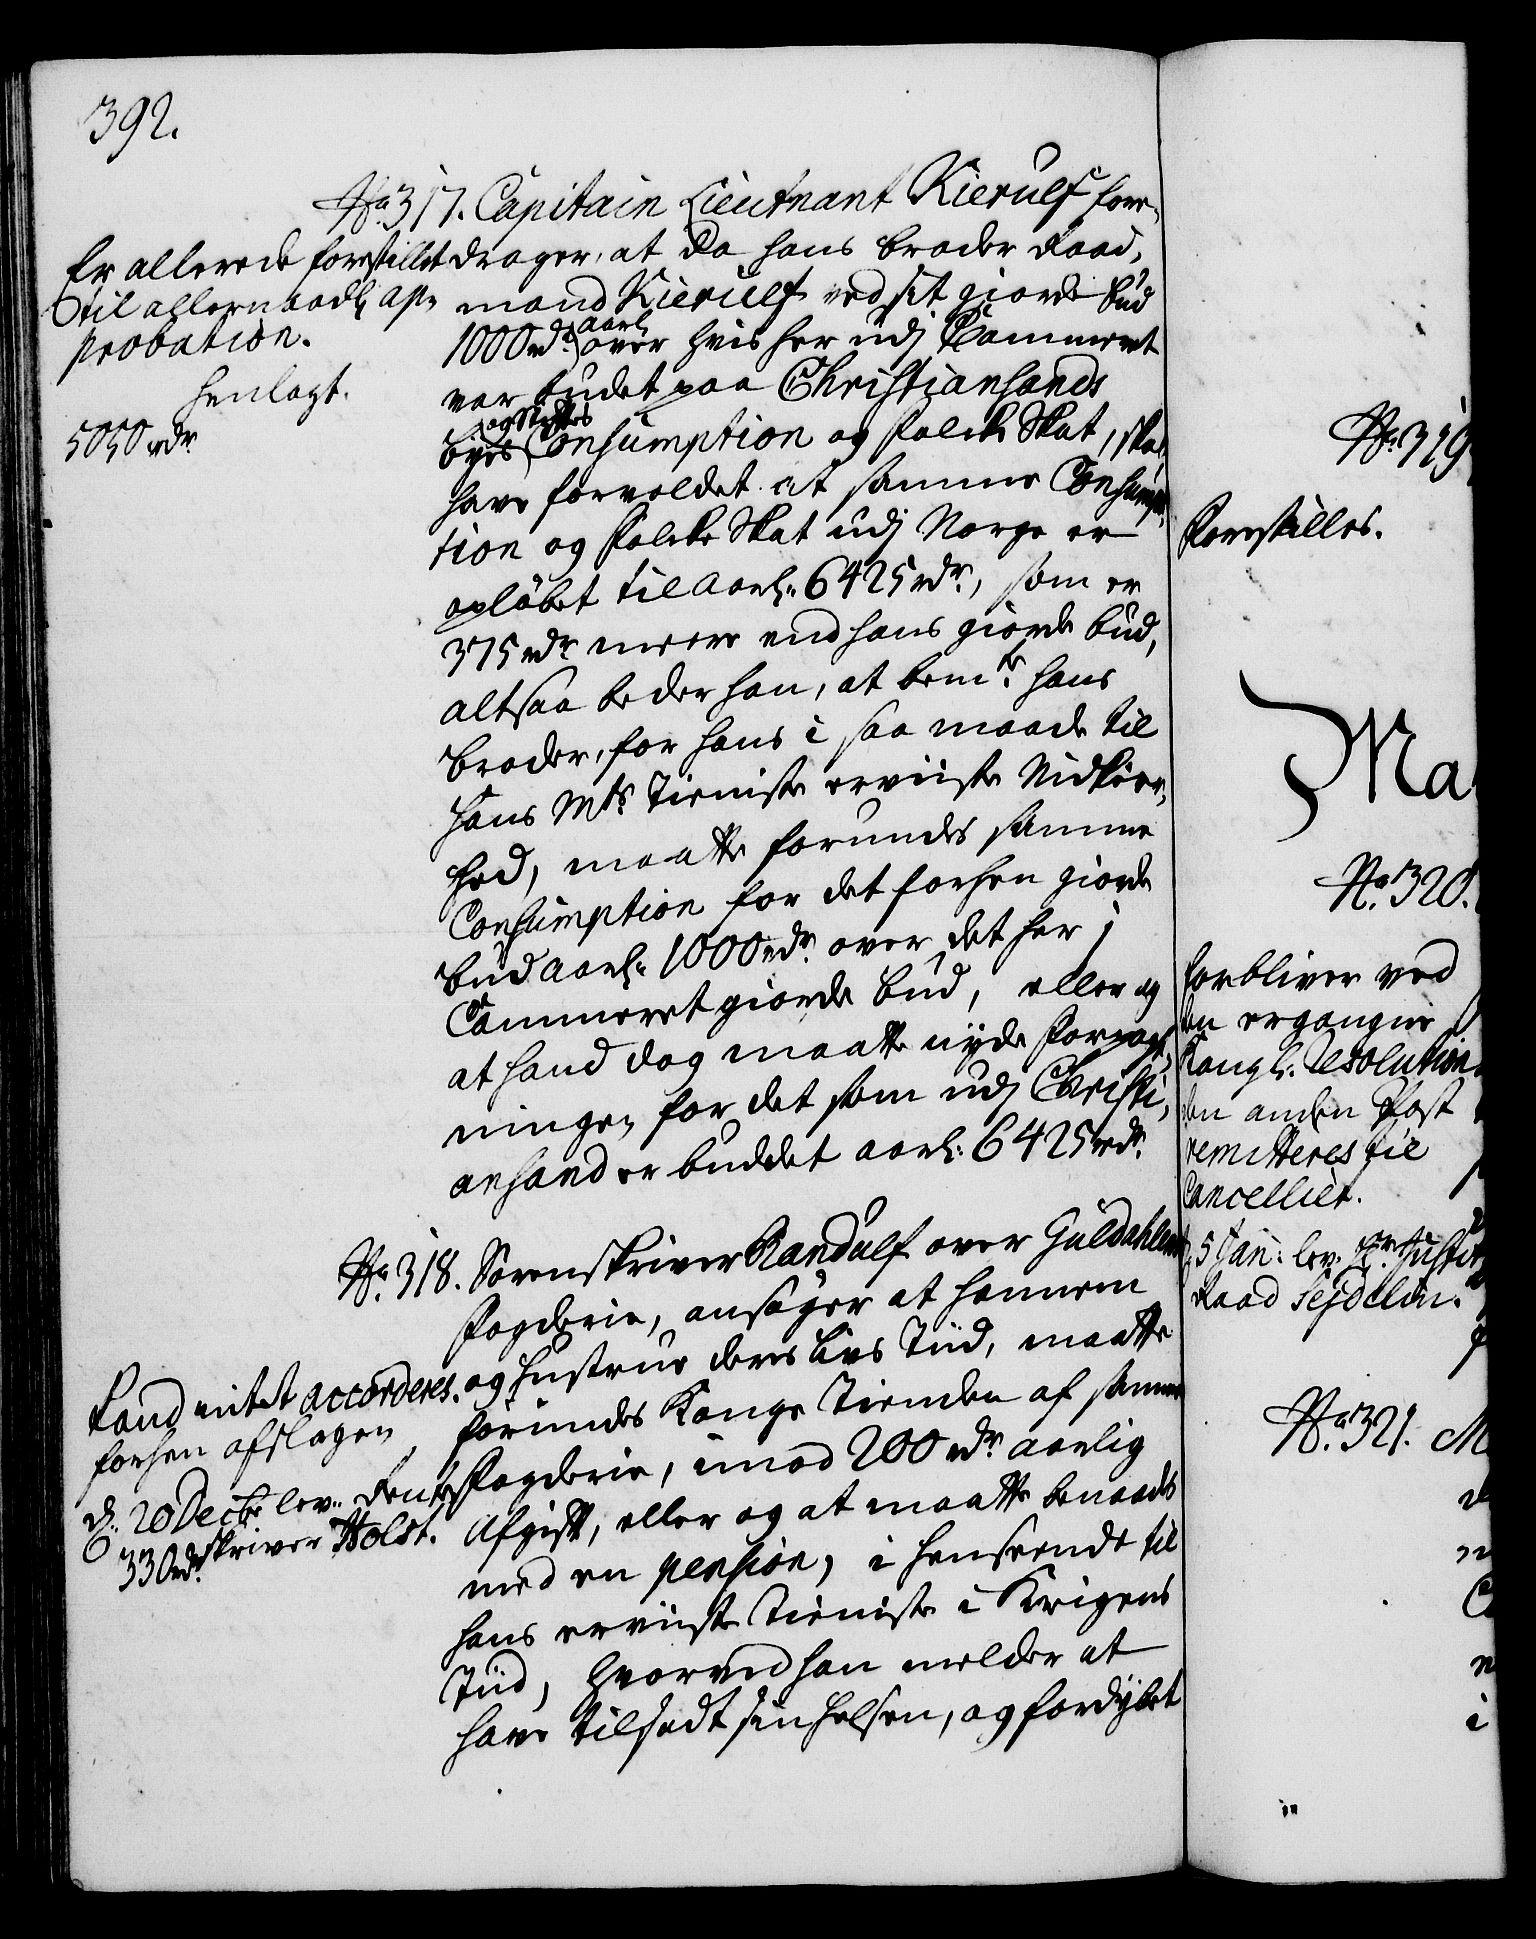 392.
No. 317. Capitain Lieutnant Kierulf fore-
drager, at da hans broder Raad,
mand Kierulf ved sit giorde bud
1000 rdr. aarl. over hvis her udj Cammeret
var budet paa Christiansands
byes og Stiftes Consumption og Folche Skat, skal
have forvoldet at samme Consump-
tion og Folche Skat udj Norge er
opløbet til aarl. 6425 rdr., som er
375 rdr. meere end hans giorde bud,
altsaa beder han, at bemte. hans
broder, for hans i saa maade til
Hans Mts. Tieniste erviiste Nidkier-
hed, maatte forundes samme
Consumption for det forhen giorde
bud aarl. 1000 rdr. over det her j
Cammeret giorde bud, eller og
at hand dog maatte nyde Forpagt-
ningen for det som udj Christi-
ansand er buddet aarl. 6425 rdr.
Er allerede forestillet
til allernaadl. ap-
probation.
henlagt.
5050 rdr.
No. 318. Sorenskriver Randulf over Guldahlens
Fogderie, ansøger at hannem
og Hustrue deres Livs Tiid, maatte
forundes Konge Tienden af samme
Fogderie, imod 200 rdr. aarlig
Afgift, eller og at maatte benaades
med en pension, i henseende til
hans erviiste Tieniste i Krigens
Tiid, hvorved han melder at
have tilsadt sin Helsen, og fordybet
Kand intet accorderes.
forhen afslagen
d. 20 Decbr. lev. Rente
skriver Holst.
330 rdr.
No. 319
Forestilles.
Ma
No. 320.
forbliver ved
den ergangne
Kongl. Resolution
den anden Post
remitteres til
Cancelliet.
5 Jan: lev. Hr. Justitz
Raad Sejdelin.
No. 321. M